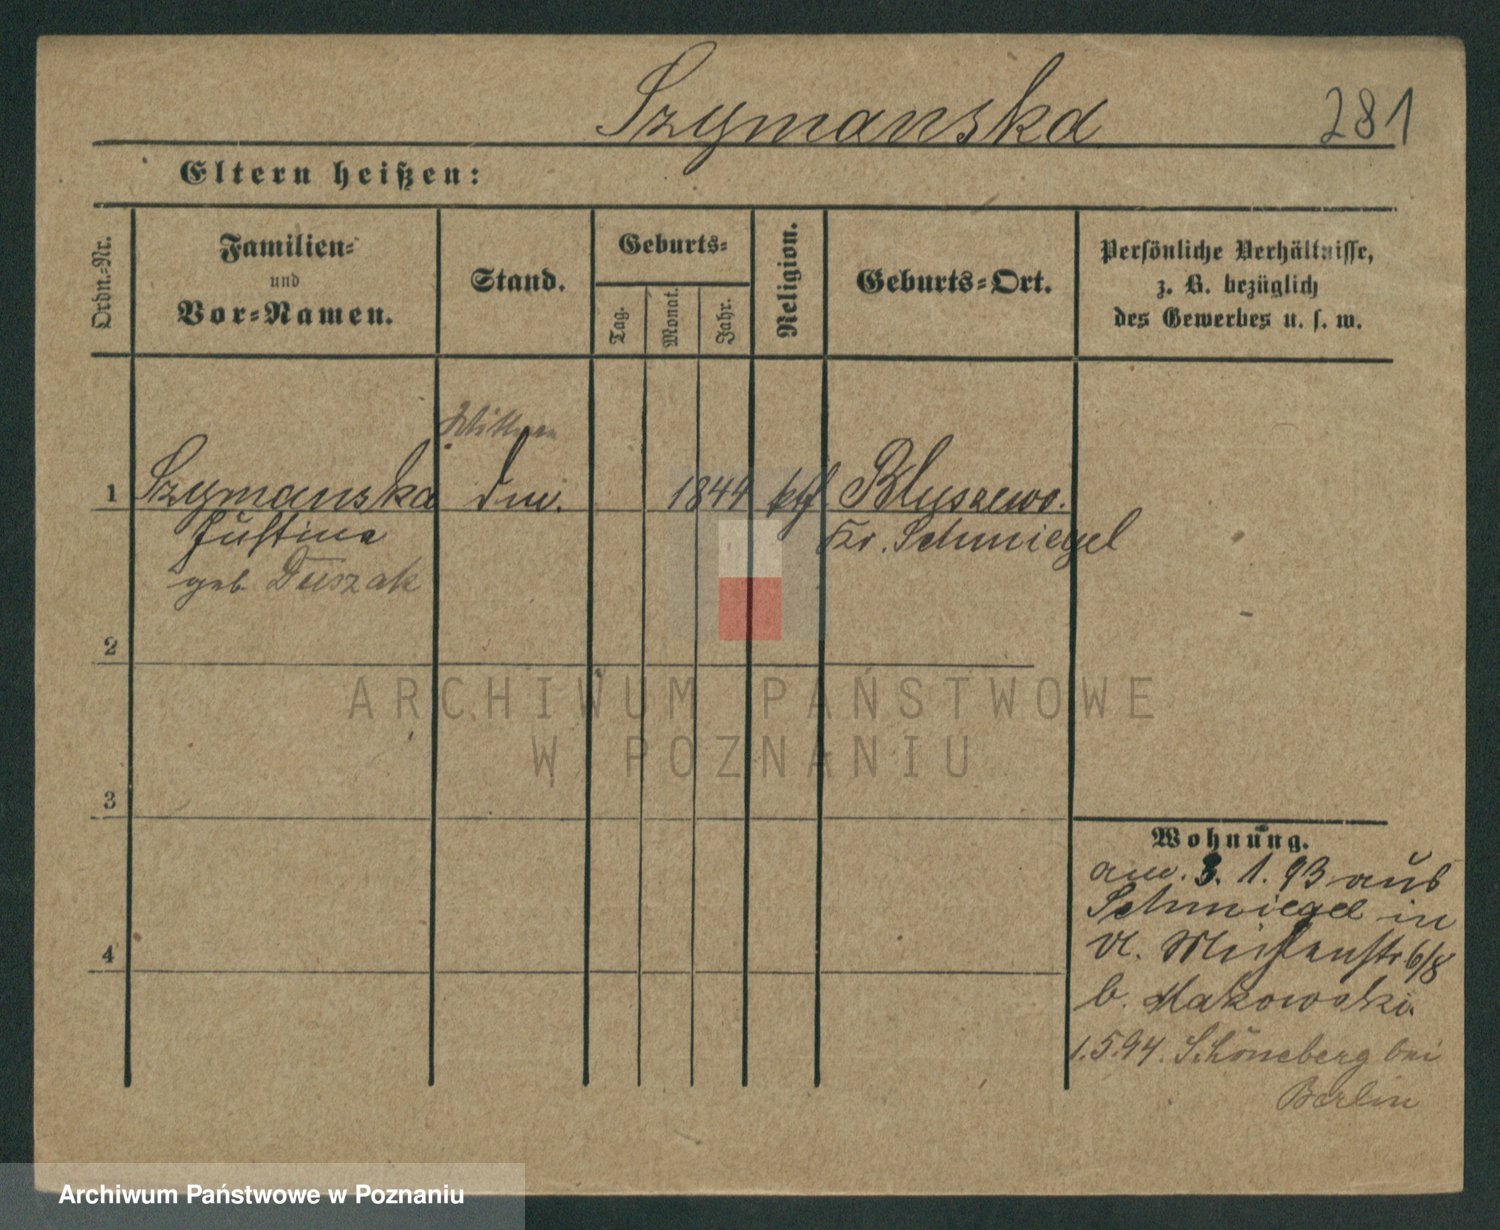 Szymanska
281
Eltern heißen:
Ordn.-Nr.
Familien-
und
Vor-Namen.
Stand.
Geburts-
Tag.
Monat.
Jahr.
Religion.
Geburts-Ort.
Persönliche Verhältnisse,
z. B. bezüglich
des Gewerbes u. s. w.
Wittwe
1 Szymanska 1844 kth Bluszewo.
Justine Kr. Schmiegel
geb. Duszak
2
3
4
ARCHIWUM PAŃSTWOWE
W POZNANIU
Wohnung.
am. 3. 1. 93 aus
Schmiegel in
6/8
b. Makowski.
1.5.94. Schöneberg bei
Berlin
Archiwum Państwowe w Poznaniu